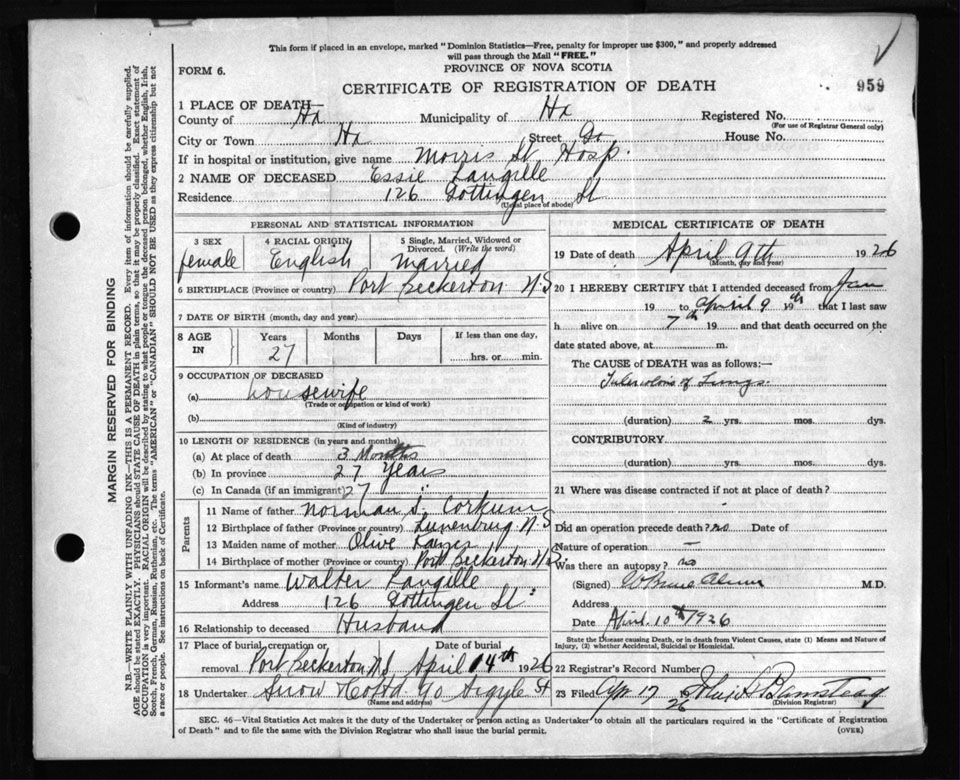 This form if placed in an envelope, marked "Dominion Statistics—Free, penalty for improper use $300," and properly addressed
will pass through the Mail "FREE."
PROVINCE OF NOVA SCOTIA
FORM 6.
CERTIFICATE OF REGISTRATION OF DEATH
959
1 PLACE OF DEATH—
County of Hx Municipality of Hx Registered No.
(For use of Registrar General only)
City or Town Hx Street House No.
If in hospital or institution, give name Morris St Hosp.
2 NAME OF DECEASED Essie Langille
Residence 126 Gottingen St
(Usual place of abode)
PERSONAL AND STATISTICAL INFORMATION
3 SEX female
4 RACIAL ORIGIN English
5 Single, Married, Widowed or Divorced. (Write the word) married
6 BIRTHPLACE (Province or country) Port Beckerton N.S
7 DATE OF BIRTH (month, day and year)
8 AGE IN Years 27 Months Days If less than one day, hrs. or min.
9 OCCUPATION OF DECEASED
(a) housewife
(Trade or occupation or kind of work)
(b)
(Kind of industry)
10 LENGTH OF RESIDENCE (in years and months)
(a) At place of death 3 Months
(b) In province 27 Years
(c) In Canada (if an immigrant) 27 "
Parents
11 Name of father Norman S. Corkum
12 Birthplace of father (Province or country) Lunenburg N.S
13 Maiden name of mother Olive
14 Birthplace of mother (Province or country) Port Beckerton N.S.
15 Informant's name Walter Langille
Address 126 Gottingen St
16 Relationship to deceased Husband
17 Place of burial, cremation or removal Port Beckerton N.S Date of burial April 14th 1926
18 Undertaker Snow Argyle St
(Name and address)
MEDICAL CERTIFICATE OF DEATH
19 Date of death April 9th 1926
(Month, day and year)
20 I HEREBY CERTIFY that I attended deceased from Jan
19 to April 9th 19 that I last saw
h alive on 7th 19 and that death occurred on the
date stated above, at m.
The CAUSE OF DEATH was as follows:—
Tuberculosis of Lungs
(duration) 2 yrs. mos. dys.
CONTRIBUTORY
(duration) yrs. mos. dys.
21 Where was disease contracted if not at place of death?
Did an operation precede death? no Date of
Nature of operation —
Was there an autopsy? no
(Signed) M.D.
Address
Date April 10th 1926
State the Disease causing Death, or in death from Violent Causes, state (1) Means and Nature of
Injury, (2) whether Accidental, Suicidal or Homicidal.
22 Registrar's Record Number
23 Filed Apr 17 1926
(Division Registrar)
SEC. 46—Vital Statistics Act makes it the duty of the Undertaker or person acting as Undertaker to obtain all the particulars required in the "Certificate of Registration
of Death" and to file the same with the Division Registrar who shall issue the burial permit.
(OVER)
MARGIN RESERVED FOR BINDING
N.B.—WRITE PLAINLY WITH UNFADING INK—THIS IS A PERMANENT RECORD. Every item of information should be carefully supplied.
AGE should be stated EXACTLY. PHYSICIANS should STATE CAUSE OF DEATH in plain terms, so that it may be properly classified. Exact statement of
OCCUPATION is very important. RACIAL ORIGIN will be described by stating to what people or tongue the deceased person belonged, whether English, Irish,
Scotch, French, German, Russian, Ruthenian, etc. The terms "AMERICAN" or "CANADIAN" SHOULD NOT BE USED as they express citizenship but not
a race or people. See instructions on back of Certificate.